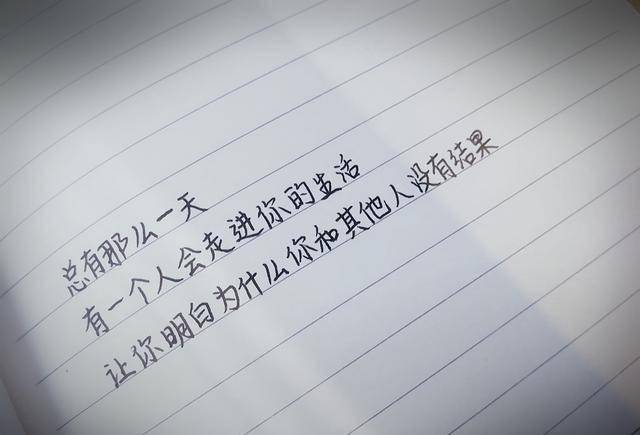 总有那么一天
有一个人会走进你的生活
让你明白为什么你和其他人没有结果